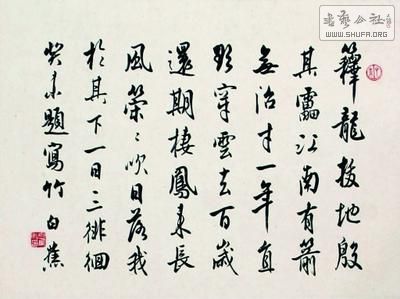 書藝公社
WWW.SHUFA.ORG
籜龍拔地殷
其靁江南有箭
無治才一年直
欲穿雲去百歲
還期棲鳳來長
風策〻吹日落我
於其下一日三徘徊
癸未題寫竹白蕉